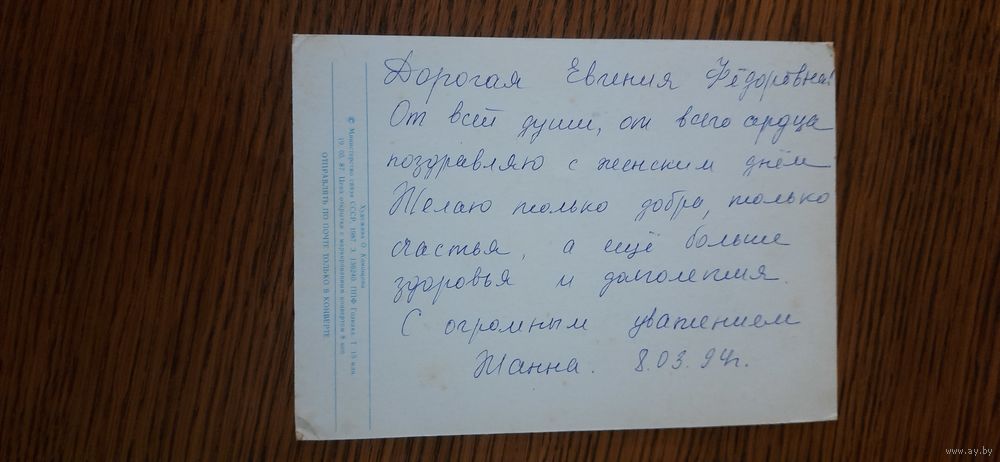 Дорогая Евгения Фёдоровна!
От всей души, от всего сердца
поздравляю с женским днём
Желаю только добра, только
счастья, а ещё больше
здоровья и долголетия.
С огромным уважением
Жанна. 8.03.94г.
Художник О.
© Министерство связи СССР. 1987. З. ППФ Гознака. Т. 15 млн.
19. 03. 87. Цена открытки с маркированным конвертом 9 коп.
ОТПРАВЛЯТЬ ПО ПОЧТЕ ТОЛЬКО В КОНВЕРТЕ
www.ay.by